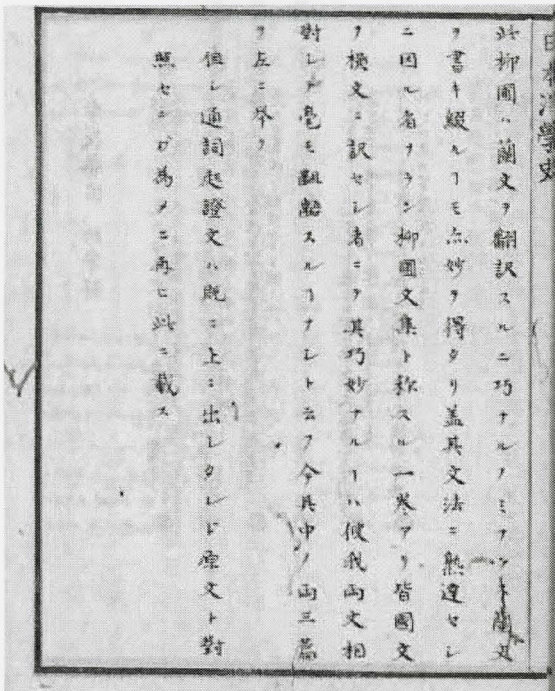 日本洋學史
此柳圃ハ蘭文ヲ翻訳スルニ巧ナルノミナラズ蘭文
ヲ書キ綴ルヿモ亦妙ヲ得タリ蓋其文法ニ熟達セシ
ニ因ル者ナラン柳圃文集ト称スル一巻アリ皆國文
ヲ横文ニ訳セシ者ニテ其巧妙ナルヿハ彼我両文相
對シテ毫モ齟齬スルヿナシト云フ今其中ノ両三篇
ヲ左ニ挙ク
但シ通詞起證文ハ既ニ上ニ出シタレド原文ト對
照センガ為メニ再ヒ此ニ載ス